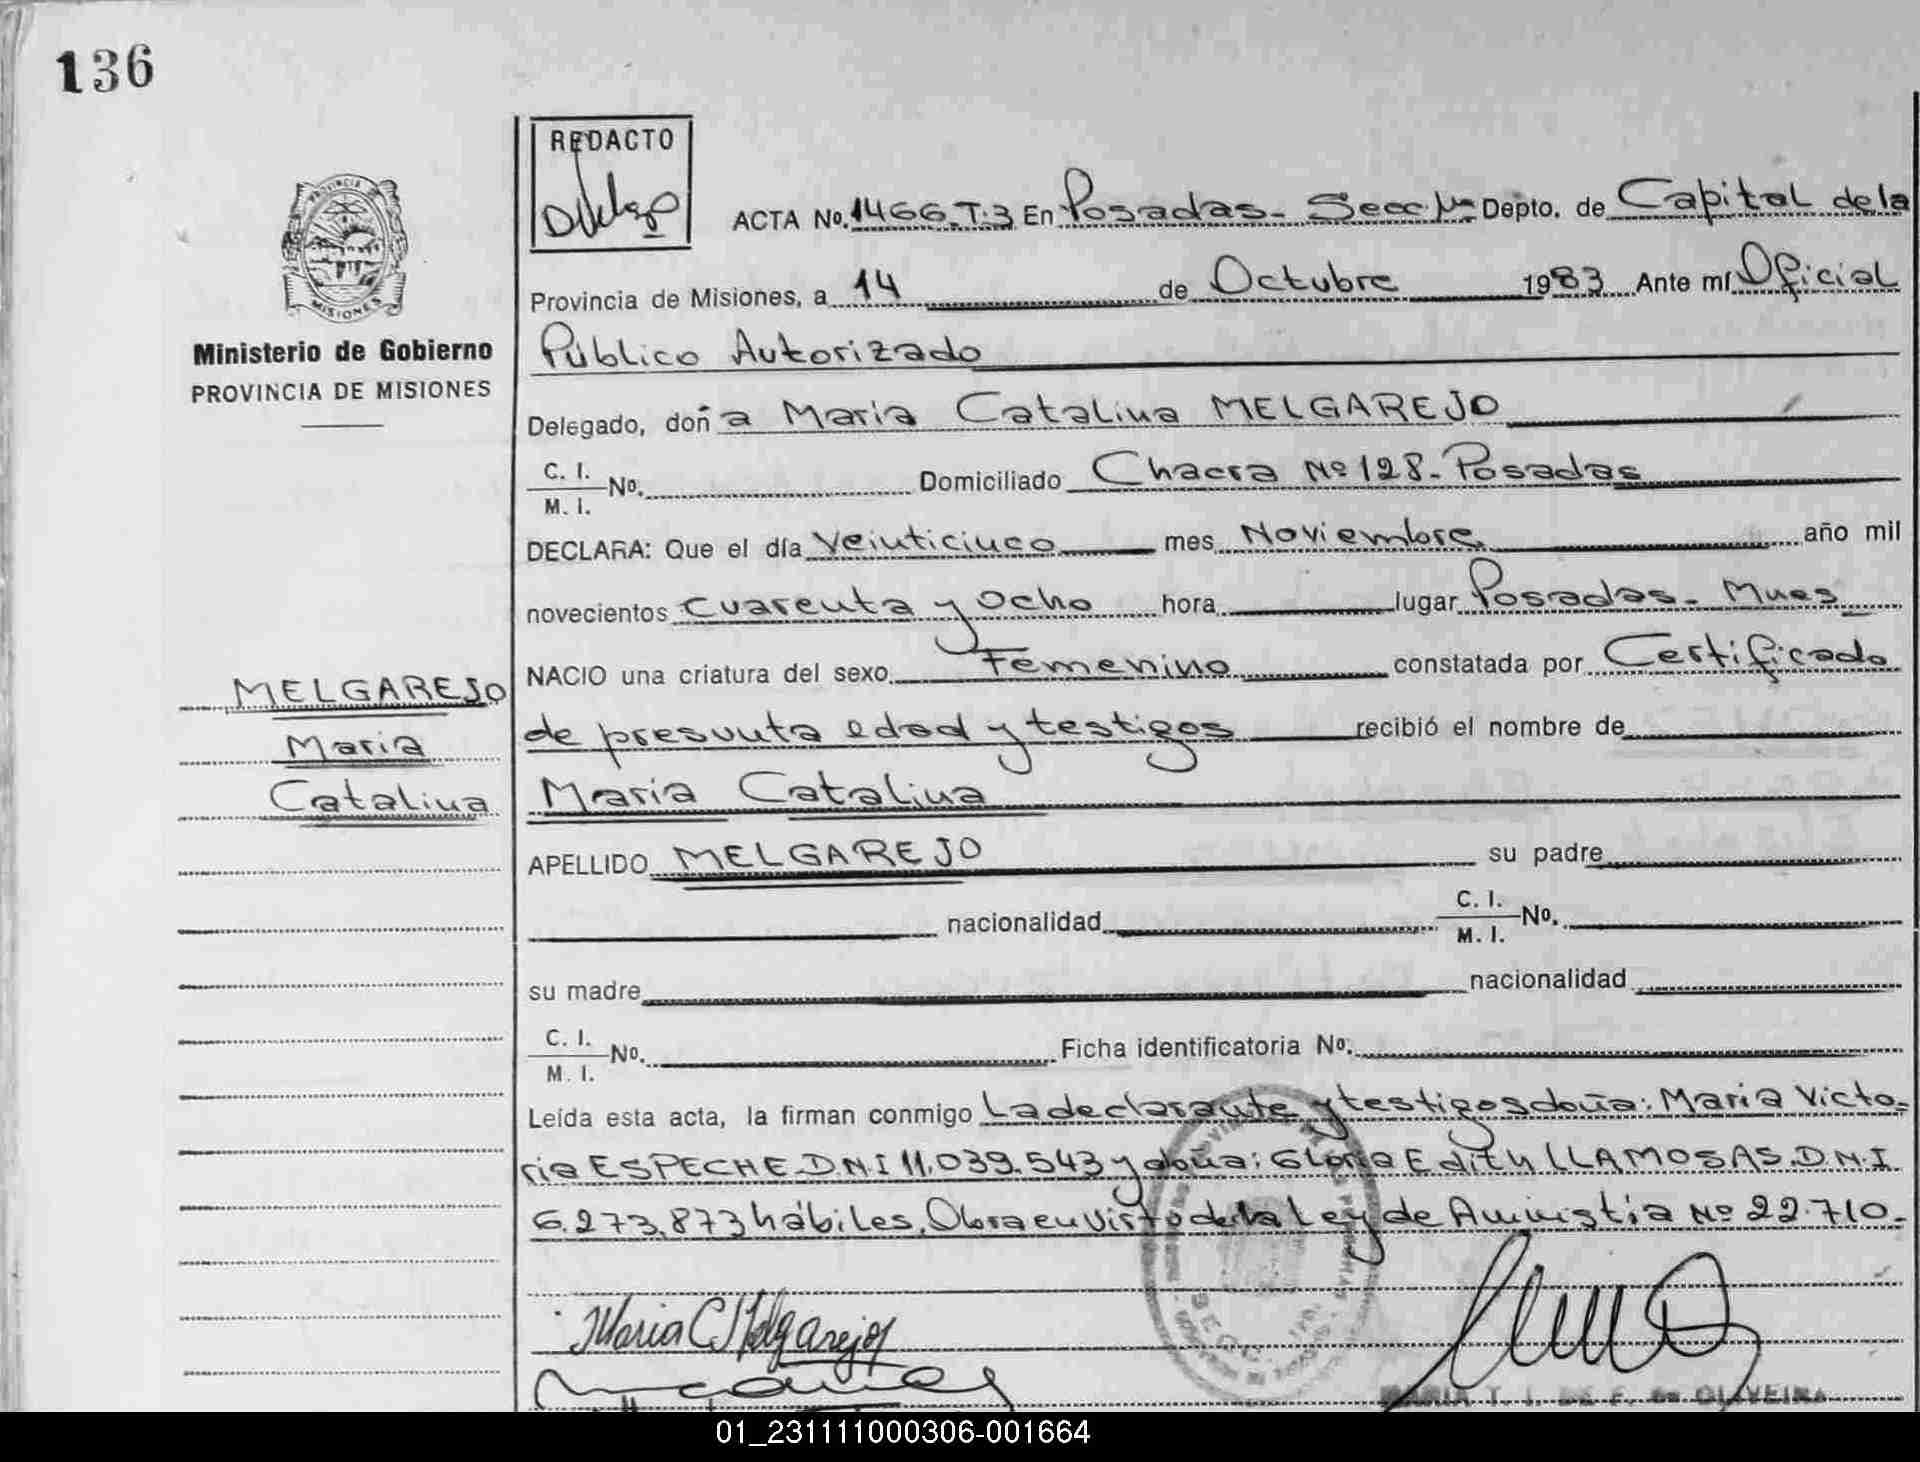 136
REDACTO
PROVINCIA DE
MISIONES
Ministerio de Gobierno
PROVINCIA DE MISIONES
ACTA No. 1466 T:3 En Posadas - Secc 1ra Depto. de Capital de la
Provincia de Misiones, a 14 de Octubre 1983 Ante mí Oficial
Público Autorizado
Delegado, doña Maria Catalina MELGAREJO
C. I.
M. I. No. Domiciliado Chacra Nº 128 - Posadas
DECLARA: Que el día veinticinco mes Noviembre año mil
novecientos cuarenta y ocho hora lugar Posadas - Mnes
NACIO una criatura del sexo Femenino constatada por Certificado
de presunta edad y testigos recibió el nombre de
Maria Catalina
APELLIDO MELGAREJO su padre
nacionalidad C. I.
M. I. No.
su madre nacionalidad
C. I.
M. I. No. Ficha identificatoria No.
Leída esta acta, la firman conmigo La declarante y testigos doña: Maria Victo-
ria ESPECHE D.N.I 11.039.543 y doña: Gloria Edith LLAMOSAS. D.N.I
6.273.873 hábiles. Obra en visto de la Ley de Amnistía Nº 22.710.-
MELGAREJO
Maria
Catalina
Maria C Melgarejo
MARIA T. I. DE F. DE OLIVEIRA
01_231111000306-001664